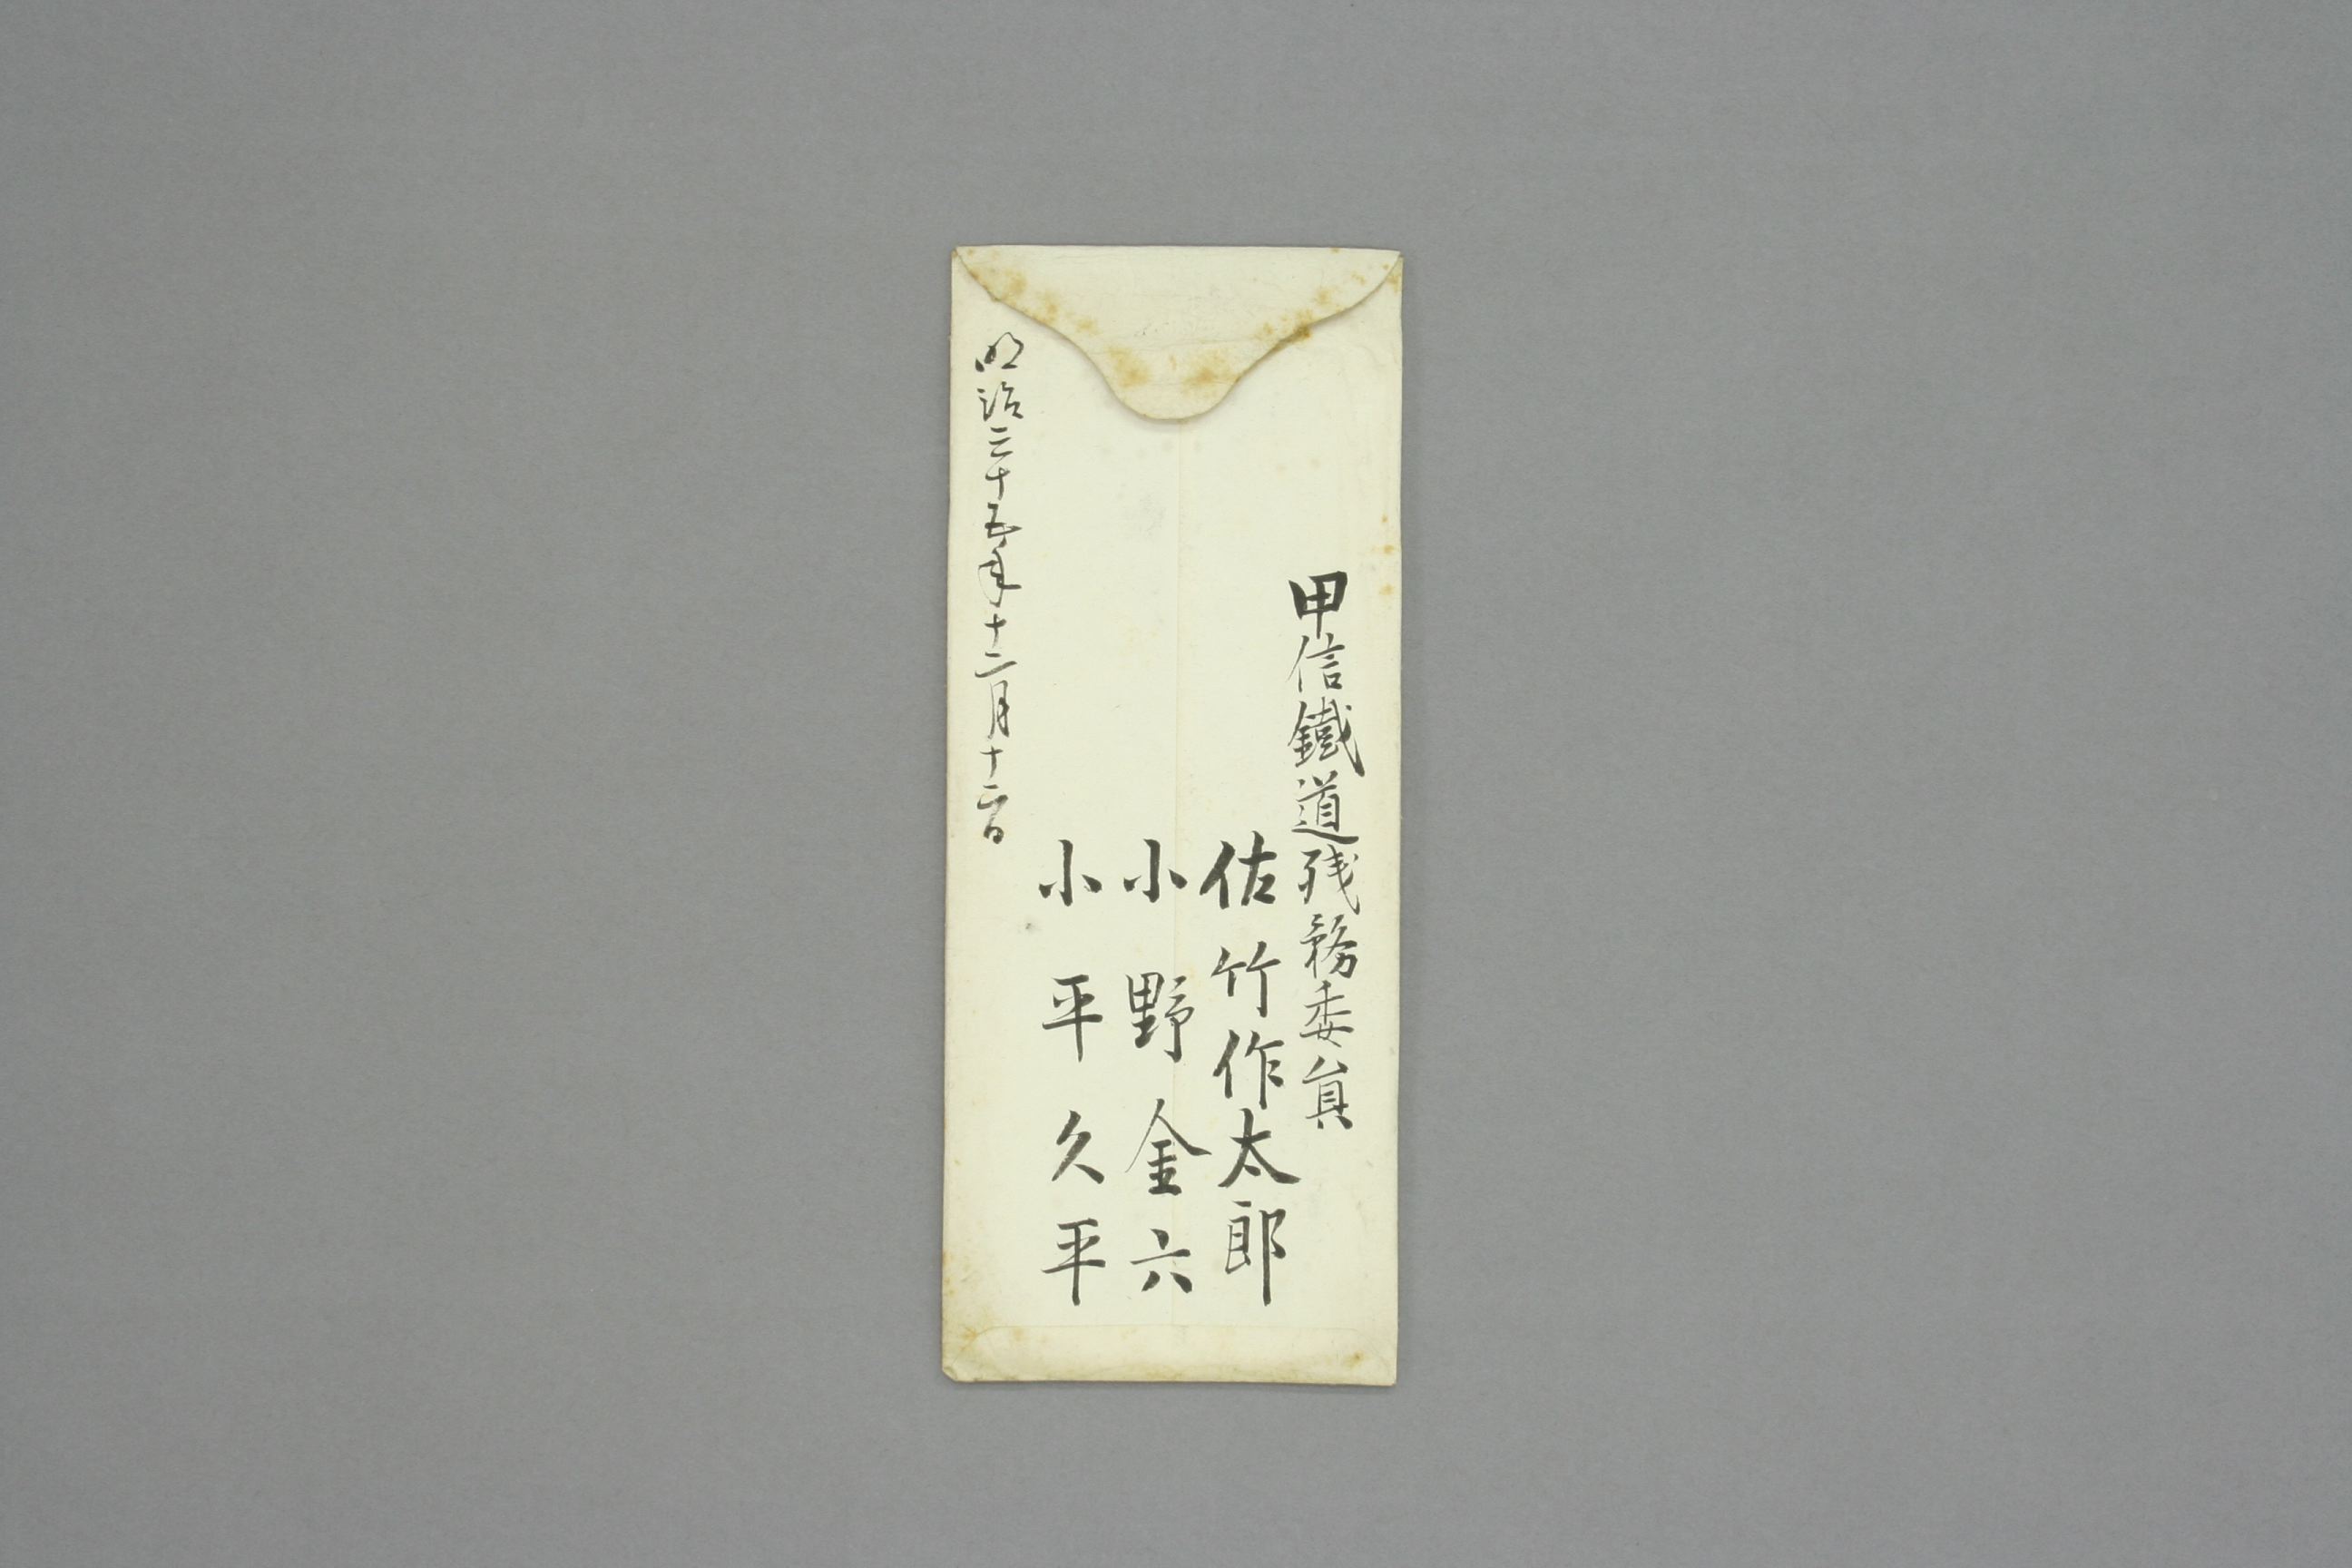 甲信鐵道残務委員
佐竹作太郎
小野金六
小平久平
明治二十五年十二月十二日